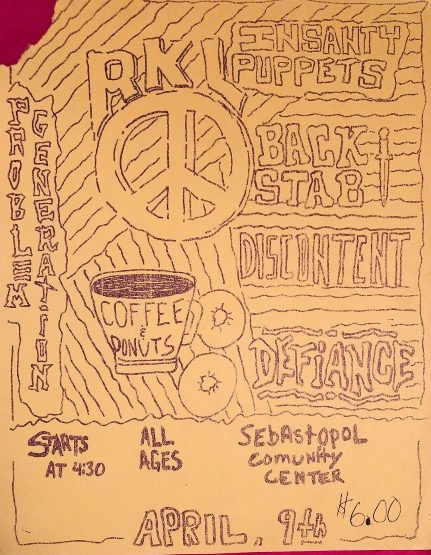 RKL
INSANTY
PUPPETS
BACK
STAB
DISCONTENT
DEFIANCE
PROBLEM
GENERATION
COFFEE
&
DONUTS
STARTS
AT 4:30
ALL
AGES
SEBASTOPOL
COMUNITY
CENTER
$6.00
APRIL. 9th